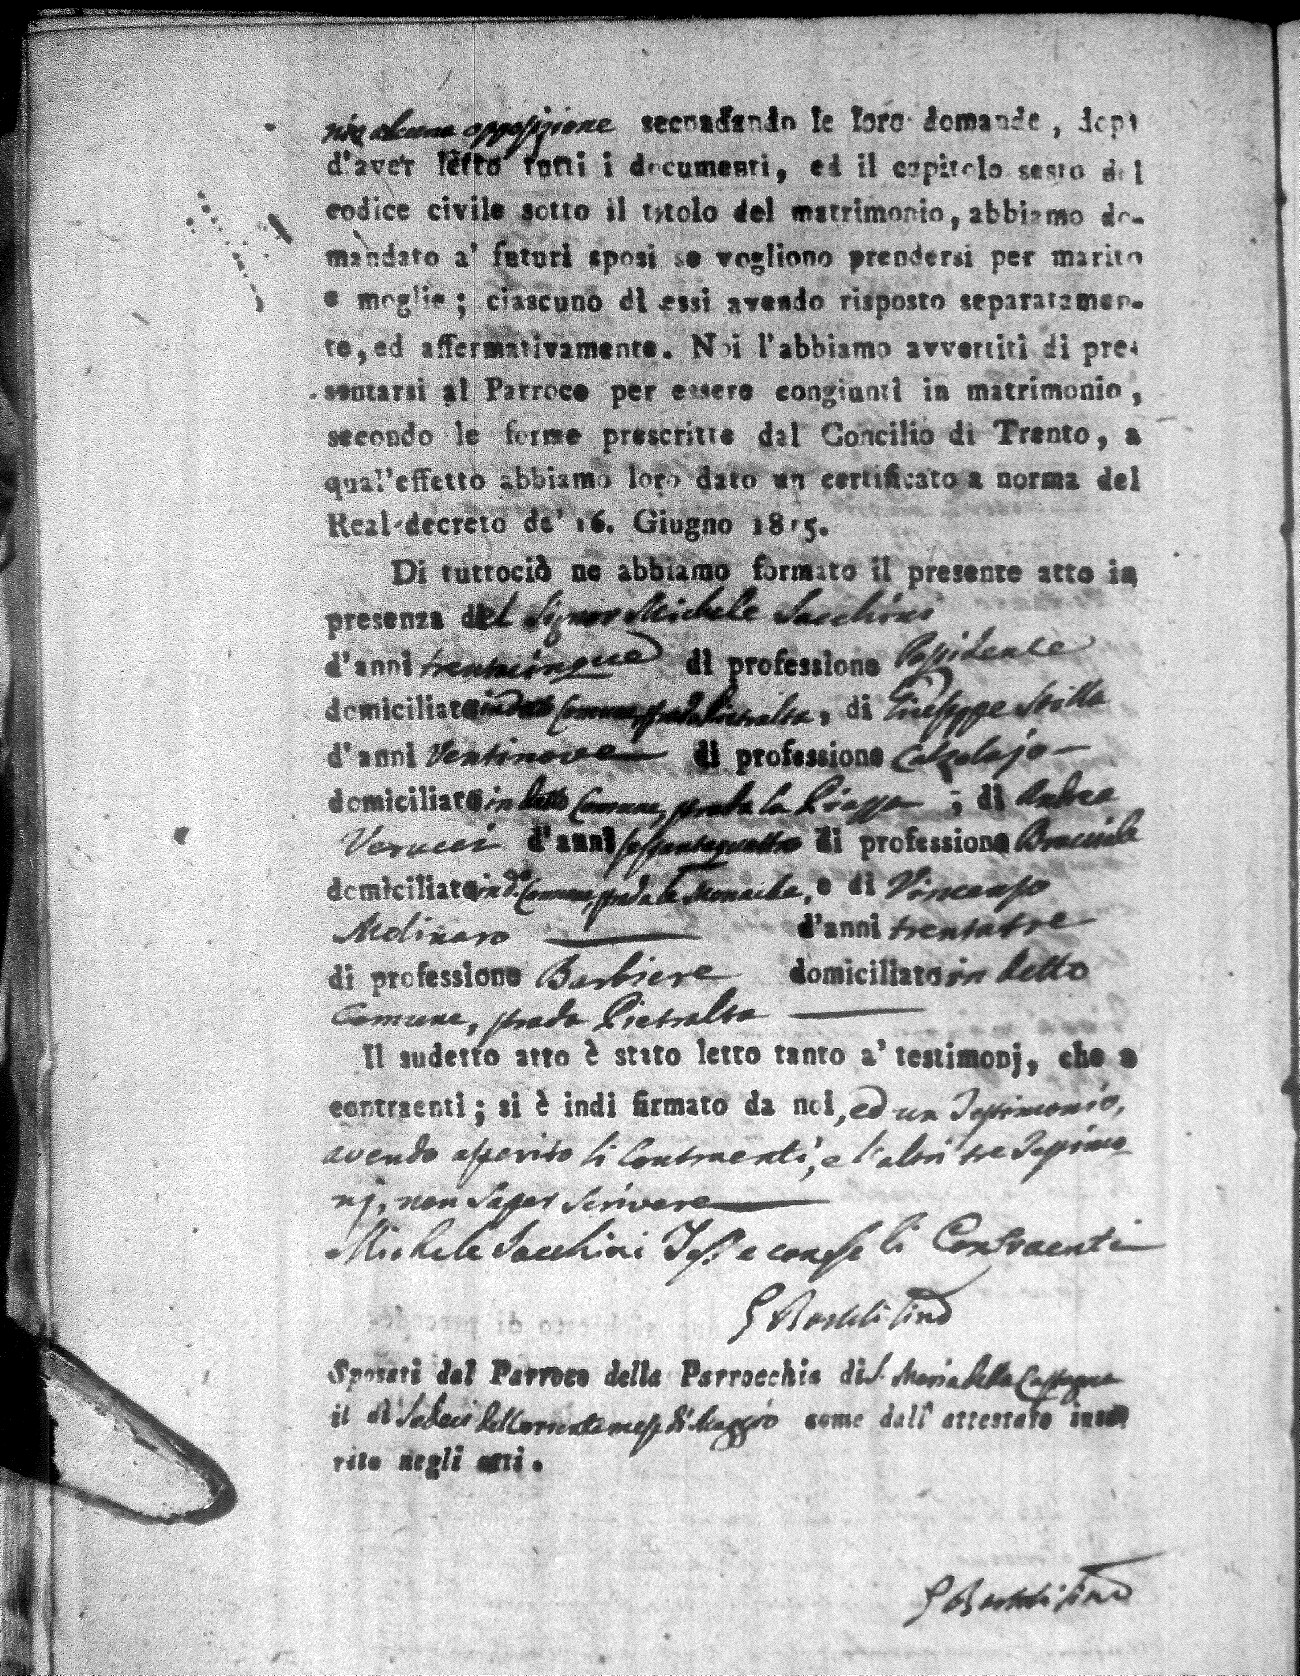 nia alcuna opposizione secondando le loro domande, dopo
d'aver letto tutti i documenti, ed il capitolo sesto del
codice civile sotto il titolo del matrimonio, abbiamo do-
mandato a' futuri sposi se vogliono prendersi per marito
e moglie; ciascuno di essi avendo risposto separatamen-
te, ed affermativamente. Noi l'abbiamo avvertiti di pre-
sentarsi al Parroco per essere congiunti in matrimonio,
secondo le forme prescritte dal Concilio di Trento, a
qual'effetto abbiamo loro dato un certificato a norma del
Real decreto de' 16. Giugno 1815.
Di tuttociò ne abbiamo formato il presente atto in
presenza del Signor Michele Sacchini
d'anni trentacinque di professione Possidente
domiciliato in detto Comune, strada Pietralta, di Giuseppe Stilla
d'anni Ventinove di professione Calzolajo
domiciliato in detto Comune, strada la Piazza; di Andrea
Verucci d'anni sessantaquattro di professione Bracciale
domiciliato in do. Comune, strada le Monache, e di Vincenzo
Molinaro d'anni trentatre
di professione Barbiere domiciliato in detto
Comune, strada Pietralta
Il sudetto atto è stato letto tanto a' testimonj, che a
contraenti; si è indi firmato da noi, ed un Testimonio,
avendo asserito li Contraenti, e l'altri tre Testimo
nj, non saper scrivere
Michele Sacchini Tes. e conosce li Contraenti
Sposati dal Parroco della Parrocchia di S. Maria della
il di Sedeci del Corrente mese di Maggio come dall' attestato inse
rito negli atti.